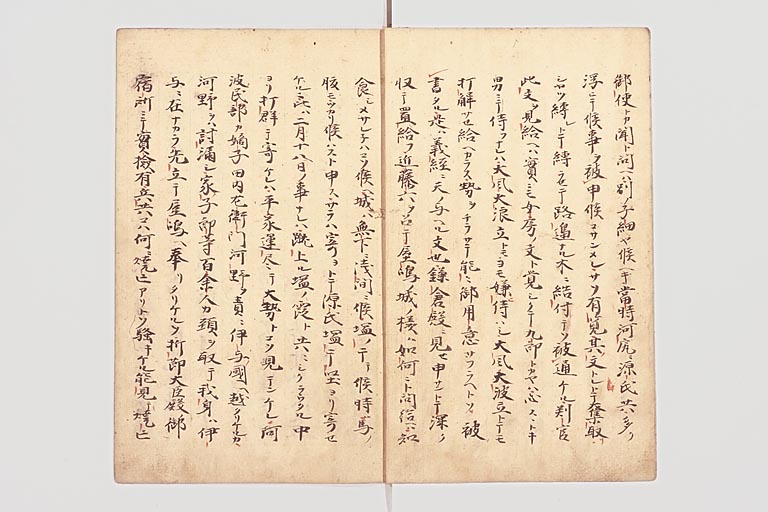 御使トカ聞ト問ヘハ別ノ子細ヤ候ヘキ當時河尻ニ源氏共多ク
浮ミテ候事ヲ被申候コサンメレサソ有覧其文トレトテ奪取
シヤツ縛レトテ縛セテ路邊ナル木ニ結付テソ被通ケル判官
此文ヲ見給ヘハ實ニ女房ノ文ト覚シクテ九郎ト申ハ心スヽトキ
男ニテ侍フナレハ大風大浪立トモヨモ嫌侍ハシ大風大波立トテモ
打解サセ給ヘカラス勢ヲチラサテ能ニ御用意サフラヘトソ被
書タル是ハ義經ニ天ノ与ヘタル文也鎌倉殿ニ見セ申サントテ深ク
収テ置給フ近藤六ヲ召テ屋嶋ノ城ノ様ハ如何ニト問給ヘハ知
食ニメサレネハコソ候ヘ城ハ無下ニ浅間ニ候塩ノヒテ候時ハ馬ノ
腹モツカリ候ハスト申スサラハ寄ヨトテ源氏塩ヒ
ケル比ハ二月十八日ノ事ナレハ蹴上タル塩ノ霞ト共ニシクラウタル中
ヨリ打群テ寄ケレハ平家運尽テ大勢トコソ見テンケレ阿
波民部カ嫡子田内左衛門河野ヲ責ニ伊与國ヘ越タリケルカ
河野ヲハ討漏シ家子郎等百余人カ頸ヲ取テ我身ハ伊
与ニ在ナカラ先立テ屋嶋ヘ奉リタリケルヲ折節大臣殿御
宿所ニテ實撿有兵共コハ何ニ焼亡アリトソ騒キケル能見テ焼亡